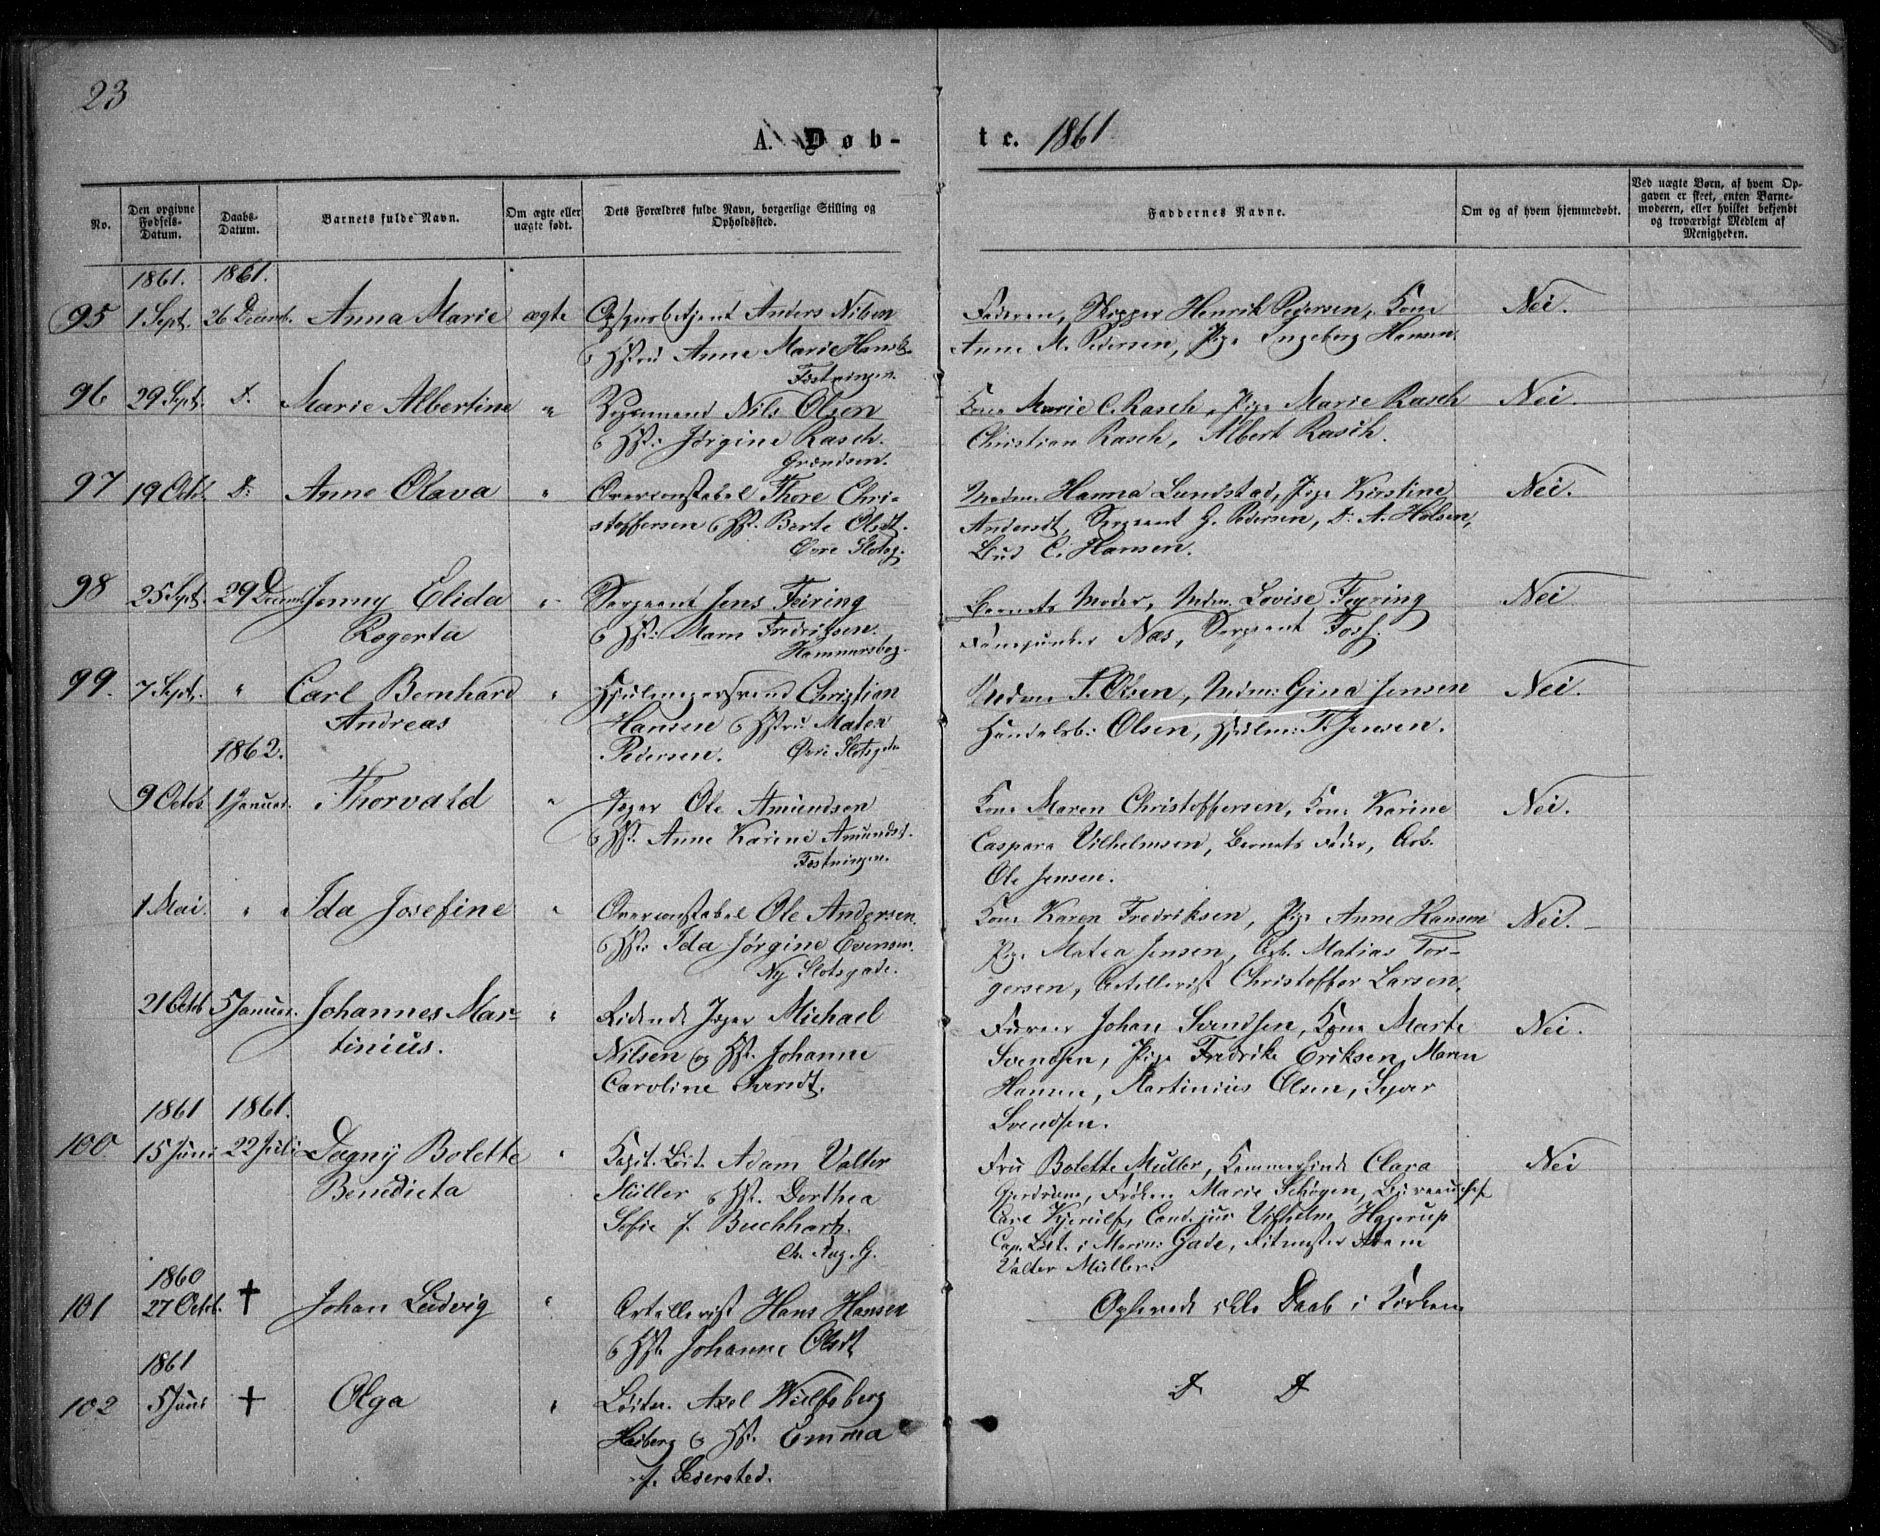 23
A. Døb- te. 1861
No.
Den opgivne Fødsels-Datum.
Daabs-Datum.
Barnets fulde Navn.
Om ægte eller uægte født.
Dets Forældres fulde Navn, borgerlige Stilling og Opholdssted.
Faddernes Navne.
Om og af hvem hjemmedøbt.
Ved uægte Børn, af hvem Opgaven er skeet, enten Barnemoderen, eller hvilket bekjendt og troværdigt Medlem af Menigheden.
1861. 1861.
95 1 Sept. 26 Decemb. Anna Marie ægte Opsynsbetjent Anders Nilsen
Hstru Anne Marie Hansd.
Fæstningen.
Faderen, Skipper Henrik Pedersen, Kone
Anne M. Pedersen, Pige Ingeborg Hansen
Nei.
96 29 Sept. D. Marie Albertine " Nils Olsen
Hst: Jørgine Rasch.
Grændsen.
Kone Marie C. Rasch, Pige Marie Rasch
Christian Rasch, Albert Rasch.
Nei
97 19 Octb. D: Anne Olava " Overconstabel Thore Chri-
stoffersen & Hst. Berte Olsdt.
Øvre Slotsg.
Madm. Hanna Lundstad, Pige Kirstine
Andersdt, Sergeant G. Pedersen, D. A. Holsen,
Bud C. Hansen.
Nei.
98 25 Sept. 29 Decemb. Jenny Elida " Sergeant Jens Feiring
Rogerta
& Hst: Maren Fredriksen.
Hammersborg.
Barnets Moder, Madm. Lovise Feyring
Fanejunker Næs, Sergeant Foss.
Nei
99. 7 Sept. " Carl Bernhard " Hjulmagersvend Christian
Andreas
Hansen & Hstru Matea
Pedersen. Øvre Slotsgade
Madm F. Olsen, Madm: Gina Jensen
Handelsb: Olsen, Hjulm: F. Jensen.
Nei.
1862.
9 Octob. 1 Januar. Thorvald " Jæger Ole Amundsen
& Hst. Anne Karine Amundsd.
Fæstningen.
Kone Maren Christoffersen, Kone Karine
Caspara Vilhelmsen, Barnets Fader, Arb.
Ole Jensen.
Nei.
1 Mai. " " Ida Josefine " Overconstabel Ole Andersen
& Hst: Ida Jørgine Evensen.
Ny Slotsgade.
Kone Karen Fredriksen, Pige Anne Hansen
Pige Matea Jensen, Arb. Matias Tor-
gersen, Artillerist Christoffer Larsen.
Nei.
21 Octob 5 Januar. Johannes Mar- " Ridende Jæger Michael
tinius.
Nilsen og Hst. Johanne
Caroline Arendt.
Johan Svendsen, Kone Marte
Svendsen, Pige Fredrike Eriksen, Maren
Hansen, Martinius Olsen, Syver
Svendsen.
Nei.
1861 1861.
100 15 Juni 22 Juli Dagny Bolette " Capit. Löit. Adam Valter
Benedicta
Müller & Hst. Dorthea
Sofie f. Buchhartz.
Ch. Aug. G.
Fru Bolette Müller, Clara
Gjerdrum, Frøken Marie Schøgen, Bureauchef
Carl Kjerulf, Cand. jur Vilhelm Hagerup
Cap. Löit. i Marinen Gade, Adam
Valter Müller.
Nei
1860
101 27 Octob. † Johan Ludvig " Artillerist Hans Hansen
& Hst. Johanne Olsdt
Opkrevde ikke Daab i Kirken
1861
102 5 Juni † Olga " Löitn. Axel Wulfsberg
Heiberg & Hst. Emma
f. Sedersted.
D D